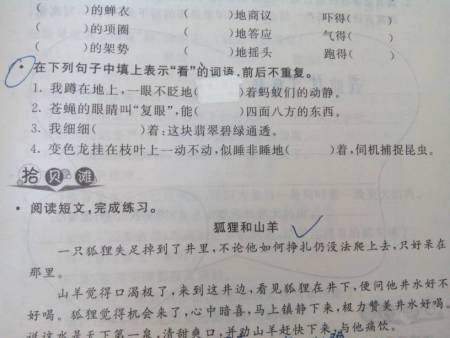 ( )的蝉衣 ( )地商议 吓得( )
( )的项圈 ( )地答应 气得( )
( )的架势 ( )地摇头 跑得( )
• 在下列句子中填上表示“看”的词语,前后不重复。
1. 我蹲在地上,一眼不眨地( )着蚂蚁们的动静。
2. 苍蝇的眼睛叫“复眼”,能( )四面八方的东西。
3. 我细细( )着:这块翡翠碧绿通透。
4. 变色龙挂在枝叶上一动不动,似睡非睡地( )着,伺机捕捉昆虫。
拾贝滩
• 阅读短文,完成练习。
狐狸和山羊
一只狐狸失足掉到了井里,不论他如何挣扎仍没法爬上去,只好呆在
那里。
山羊觉得口渴极了,来到这井边,看见狐狸在井下,便问他井水好不
好喝。狐狸觉得机会来了,心中暗喜,马上镇静下来,极力赞美井水好喝,
说这水是天下第一泉,清甜爽口,并劝山羊赶快下来,与他痛饮。